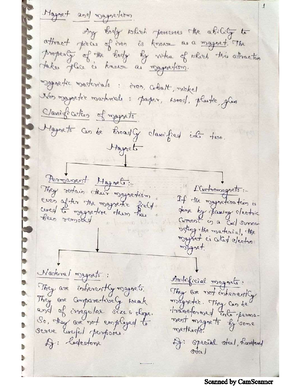 1
Magnet and magnetism
Any body which possesses the ability to
attract piece of iron is known as a magnet. The
property of the body by virtue of which the attraction
takes place is known as magnetism.
Magnetic materials : iron, cobalt, nickel
Non magnetic materials : paper, wood, plastic,
Classification of magnets
Magnets can be broadly classified into two
Magnets
Permanent Magnets:-
They retain their magnetism
even after the magnetic field
used to magnetise them has
been removed
Electromagnets:-
If the magnetisation is
done by flowing electric
current in a coil surroun-
ding the material, the
magnet is called electro-
magnet
Natural magnets :
They are inherently magnets.
They are comparatively weak
and of irregular size & shape.
So, they are not employed to
serve useful purpose
Eg : Lodestone
Artificial magnets :
They are not inherently
magnetic. They can be
transformed into perma-
nent magnets by some
methods
Eg: special steel, hardened
steel
Scanned by CamScanner